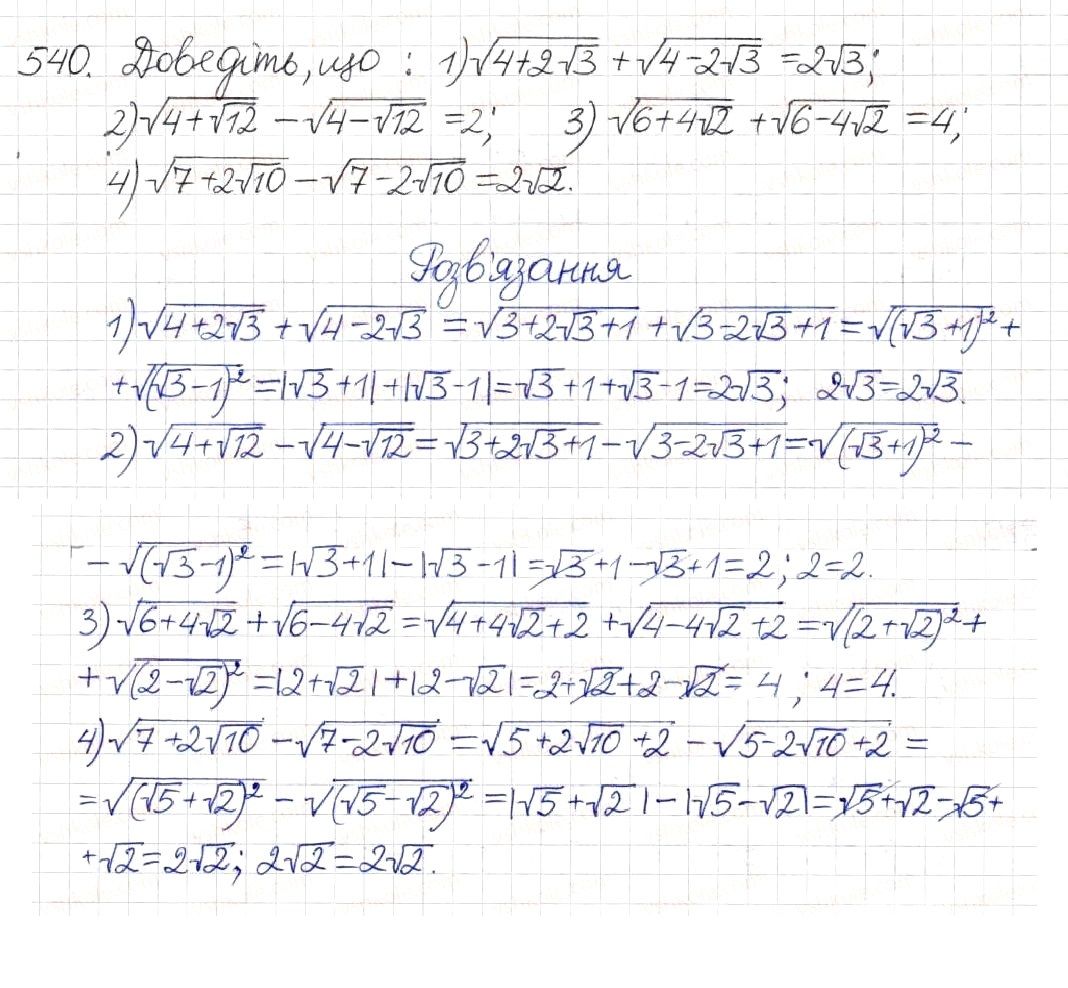 540. Доведіть, що : 1)√(4+2√3) + √(4-2√3) = 2√3;
2)√(4+√12) - √(4-√12) = 2; 3) √(6+4√2) + √(6-4√2) = 4;
4)√(7+2√10) - √(7-2√10) = 2√2.
Розв'язання
1)√(4+2√3) + √(4-2√3) = √(3+2√3+1) + √(3-2√3+1) = √((√3+1)²) +
+ √((√3-1)²) = |√3+1| + |√3-1| = √3+1+√3-1 = 2√3; 2√3=2√3.
2)√(4+√12) - √(4-√12) = √(3+2√3+1) - √(3-2√3+1) = √((√3+1)²) -
- √((√3-1)²) = |√3+1| - |√3-1| = √3+1-√3+1 = 2; 2=2.
3)√(6+4√2) + √(6-4√2) = √(4+4√2+2) + √(4-4√2+2) = √((2+√2)²) +
+ √((2-√2)²) = |2+√2| + |2-√2| = 2+√2+2-√2 = 4; 4=4.
4)√(7+2√10) - √(7-2√10) = √(5+2√10+2) - √(5-2√10+2) =
= √((√5+√2)²) - √((√5-√2)²) = |√5+√2| - |√5-√2| = √5+√2-√5+
+√2=2√2; 2√2=2√2.